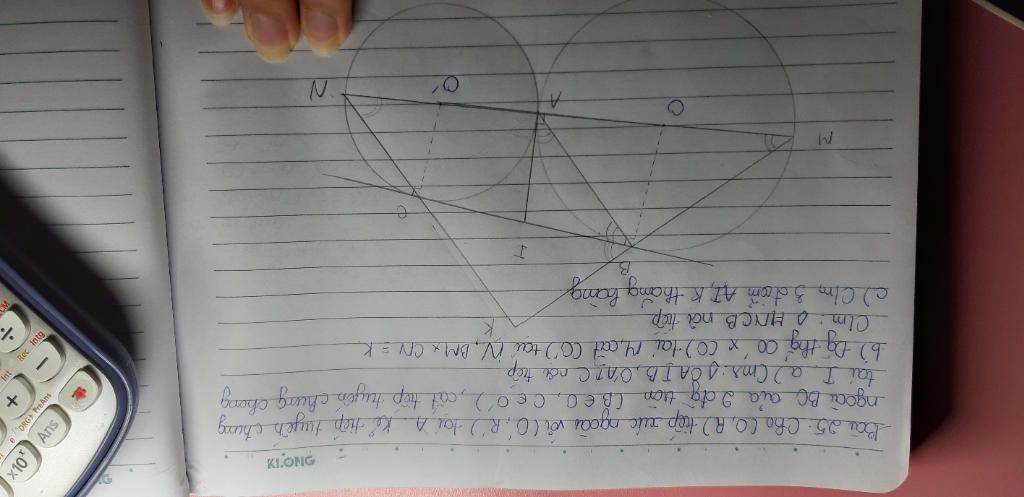 KLONG
Bài 25: Cho (O, R) tiếp xúc ngoài với (O', R') tại A. Kẻ tiếp tuyến chung
ngoài BC của 2 đg tròn (B ∈ O, C ∈ O'), cắt tiếp tuyến chung chung
tại I. a) Cm: ◊ OAIB, O'AIC nội tiếp
b) Đg thg OO' x (O) tại M, cắt (O') tại N, BM x CN = K
Clm: ◊ MNCB nội tiếp
c) Clm 3 điểm A, I, K thẳng hàng
K
B
I
C
M
O
A
O'
N
G
x10ˣ
Ans
DRG▸
PreAns
+
−
÷
Int
Rec
Intg